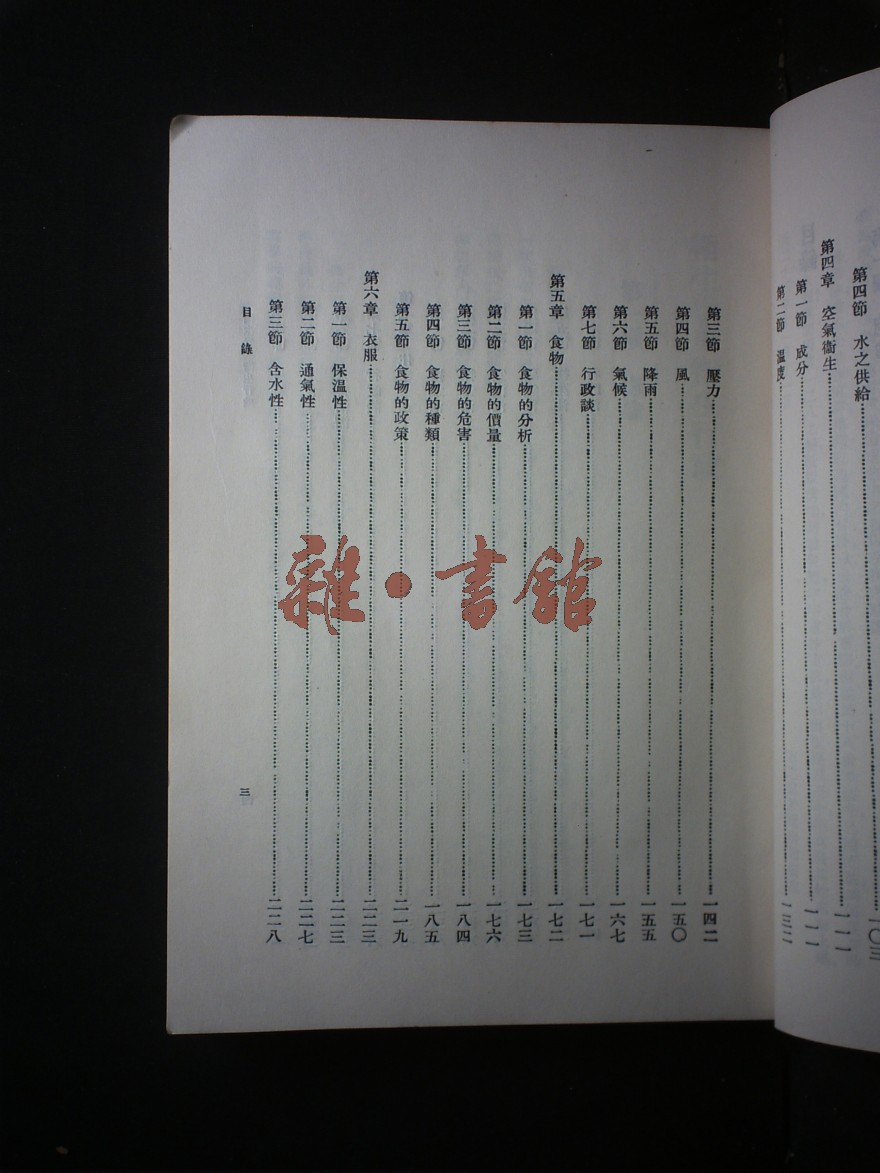 第四節 水之供給 一〇三
第四章 空氣衞生 一一一
第一節 成分 一一一
第二節 溫度 一三二
第三節 壓力 一四二
第四節 風 一五〇
第五節 降雨 一五五
第六節 氣候 一六七
第七節 行政談 一七一
第五章 食物 一七二
第一節 食物的分析 一七三
第二節 食物的價量 一七六
第三節 食物的危害 一八四
第四節 食物的種類 一八五
第五節 食物的政策 二一九
第六章 衣服 二二三
第一節 保温性 二二三
第二節 通氣性 二二七
第三節 含水性 二二八
目錄 三
雜·書館